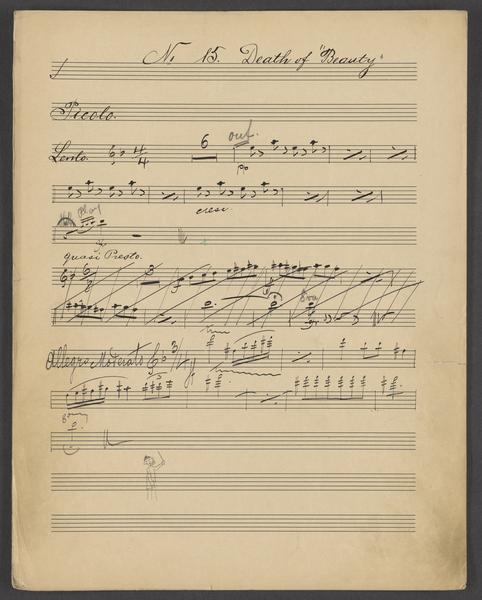 No 15. Death of "Beauty"
Picolo.
Lento. 4/4 6 out.
pp
cresc.
Play
quasi Presto.
6/8 3
8va
Allegro Moderato 3/4